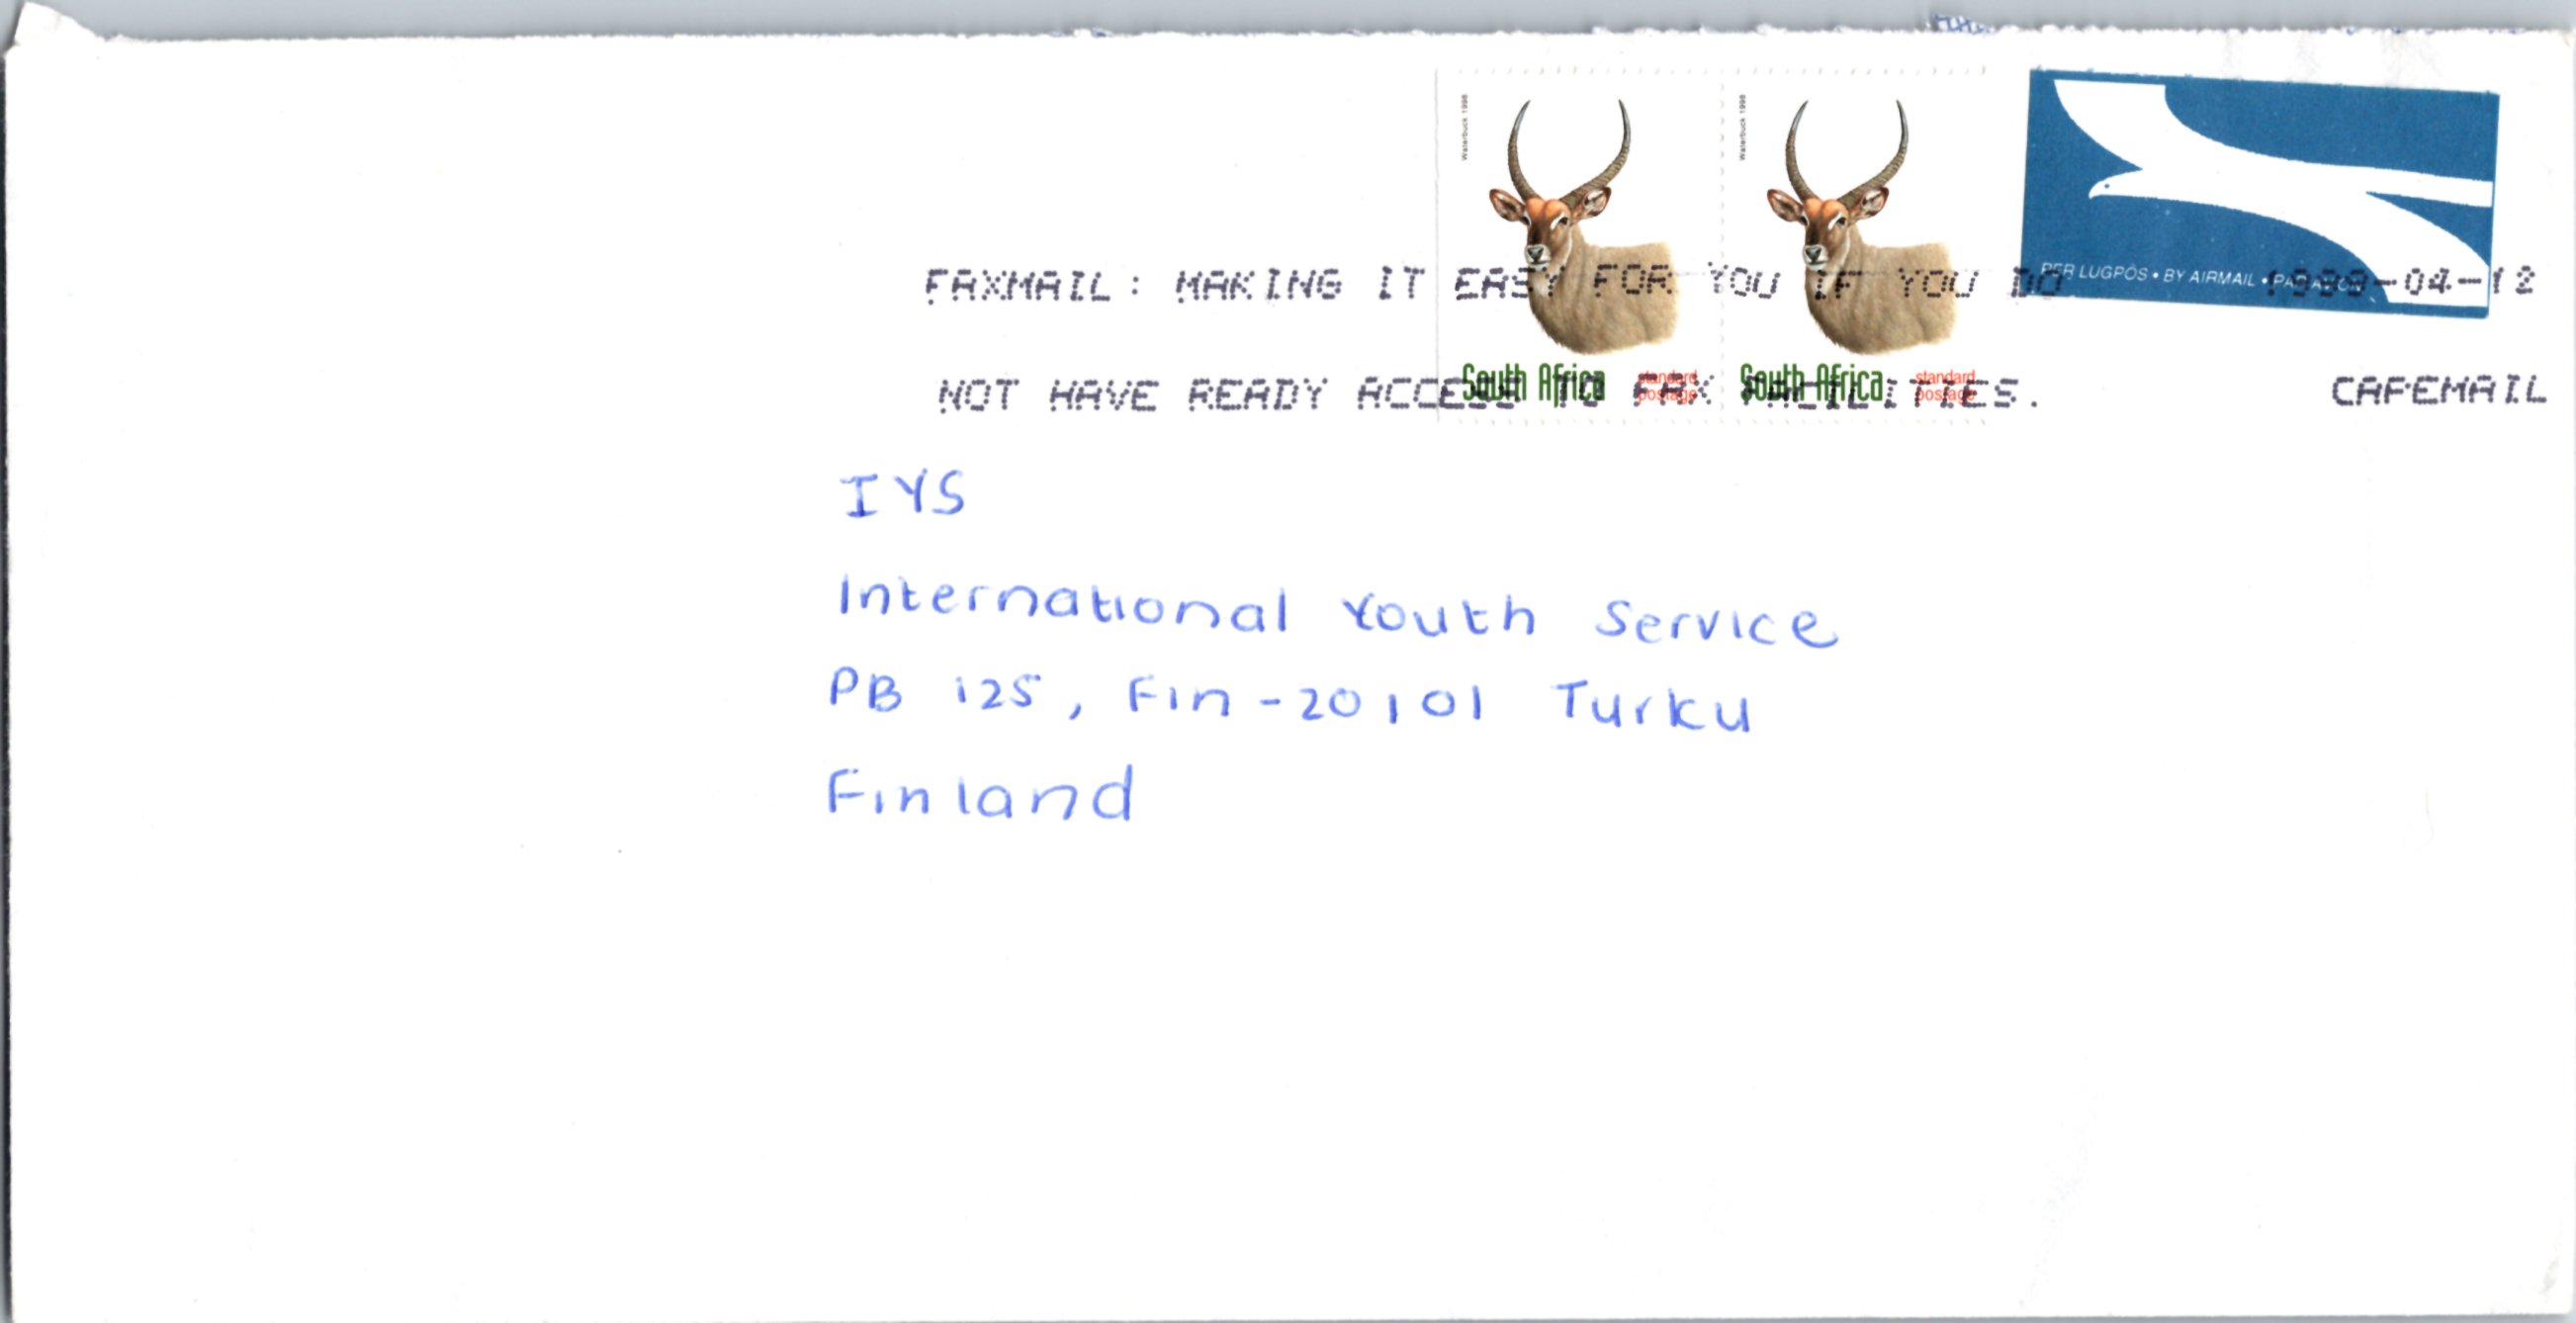 Waterbuck 1998
Waterbuck 1998
PER LUGPOS • BY AIRMAIL • PAR AVION
FAXMAIL: MAKING IT EASY FOR YOU IF YOU DO 1999-04-12
NOT HAVE READY ACCESS TO FAX FACILITIES. CAPEMAIL
South Africa standard postage
South Africa standard postage
IYS
International Youth Service
PB 125, Fin-20101 Turku
Finland